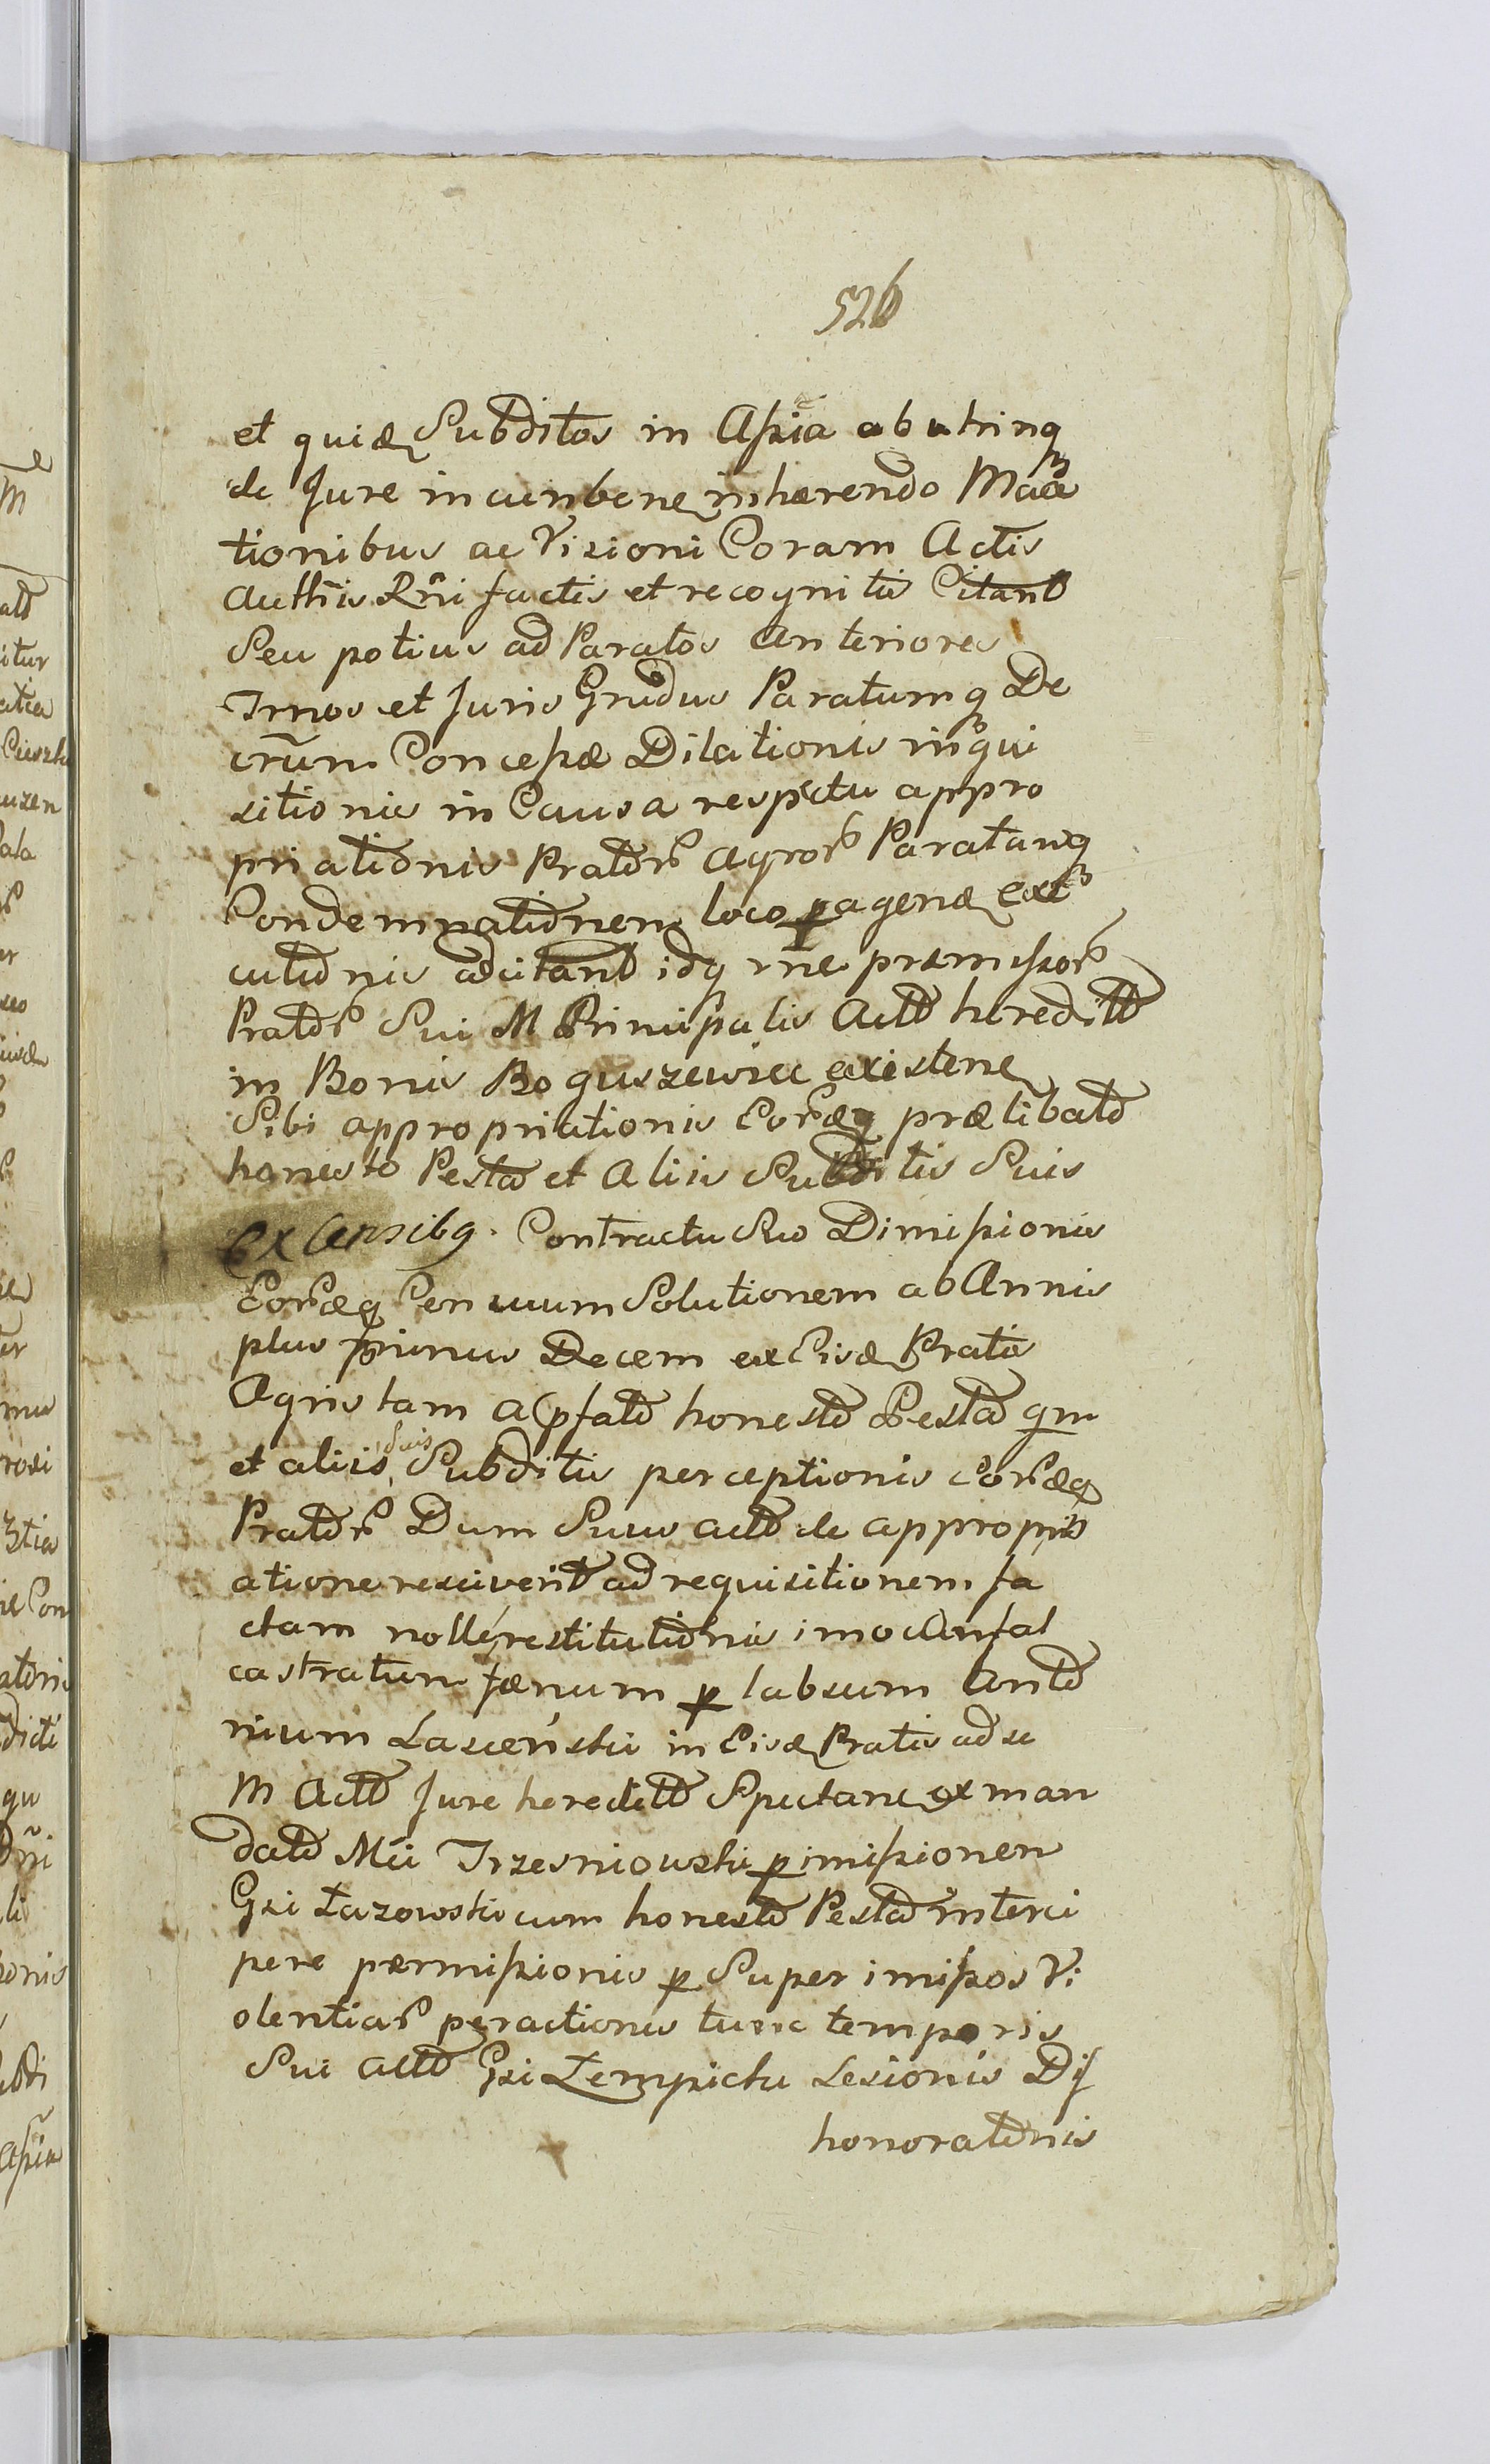 526
et quidē Subditos in Assia abutrinq
de Jure incumbene inhærendo Maā
tionibus ac Visioni Coram Actis
Authiis Rñi factis et recognitis Citant
Seu potius ad Paratos Anteriores
Trnos et Juris Gradus Paratumq De
crūm Concessæ Dilationis inqui
sitionis in Causa respectu appro
priationis Pratōr Agror Paratamq
Condemnationem loco pagenæ Exe
cutionis adcitant idq rne præmissor
Pratōr Sui M Principalis Actō heredittō
in Bonis Boguszewice existene
Sibi appropriationis Eoræq prælibatō
honesto Pestā et Aliis Subditis Suis
Ex Censibq. Contractu Suo Dimissionis
Eoræq Censuum Solutionem ab Annis
plus minus Decem ex Eisd Pratis
Agris tam a pfatō honestō Pestā qm
et aliis suis Subditis perceptionis Eoræq
Pratōr Dum Suus actō de appropri
atione resciverit ad requisitionem fa
ctam nolle restitutionis imo Anfal
castratum fænum p labsum Antō
nium Lascenski in Eisd Pratis ad se
M Actō Jure heredittō Spectane ex man
datō Mci Trzesniowski p imissionem
Gsi Łazowski cum honestō Pestā interci
pere permissionis p Super imissos Vi
olentiar peractionis tunc temporis
Sui Actō Gsi Łempicki Lesionis Dis
honorationis